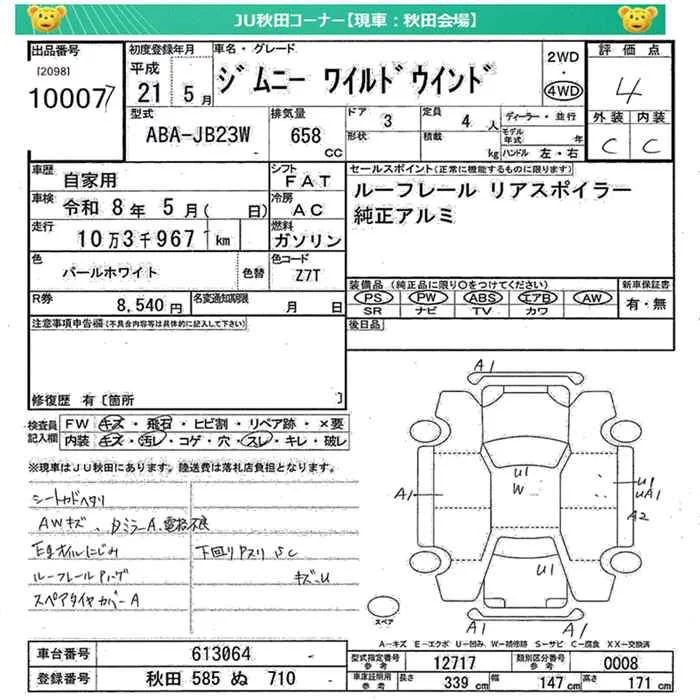 JU秋田コーナー【現車：秋田会場】
出品番号 初度登録年月 車名・グレード 2WD 評価点
[2098] 平成 ジムニー ワイルドウインド ・
10007 21 5月 4WD 4
型式 排気量 ドア 3 定員 4 人 ディーラー・並行 外装 内装
ABA-JB23W 658 CC 形状 積載 kg モデル年式 年 ハンドル 左・右 C C
車歴 自家用 シフト FAT セールスポイント(正常に機能するものに限ります)
車検 令和 8年 5月( 日) 冷房 AC ルーフレール リアスポイラー
走行 10万3千967 km 燃料 ガソリン 純正アルミ
色 パールホワイト 色替 色コード Z7T
装備品(純正品に限り○をつけてください) 新車保証書
R券 8,540円 名変通知期限 月 日 PS PW ABS エアB AW 有・無
SR ナビ TV カワ
注意事項申告欄(不具合内容等は具体的に記入して下さい) 後日品
修復歴 有〔箇所 〕
検査員記入欄 FW キズ・飛石・ヒビ割・リペア跡・×要
内装 キズ・汚レ・コゲ・穴・スレ・キレ・破レ
※現車はJU秋田にあります。陸送費は落札店負担となります。
シートカドヘタリ
AWキズ、 ミラーA.電格不良
オイルにじみ 下回り
ルーフレール キズ-U
スペアタイヤカバーA
A1
U1
W
A1
U1
UA1
A2
U1
A1
A1
スペア
A-キズ E-エクボ U-凹み W-補修跡 S-サビ C-腐食 XX-交換済
車台番号 613064 型式指定番号参考 12717 類別区分番号参考 0008
登録番号 秋田 585 ぬ 710 車庫証明用参考 長さ 339 cm 幅 147 cm 高さ 171 cm